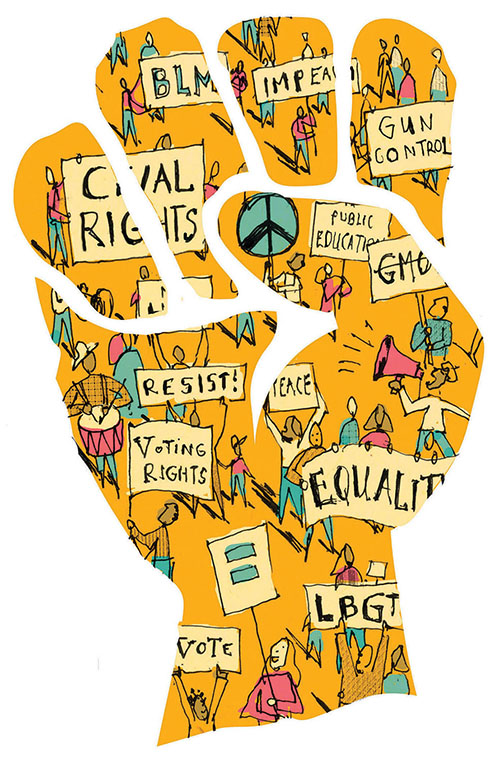 BLM
IMPEAC
GUN
CONTROL
CIVAL
RIGHTS
PUBLIC
EDUCATIO
GMO
RESIST!
PEACE
VOTING
RIGHTS
EQUALIT
=
LBGT
VOTE